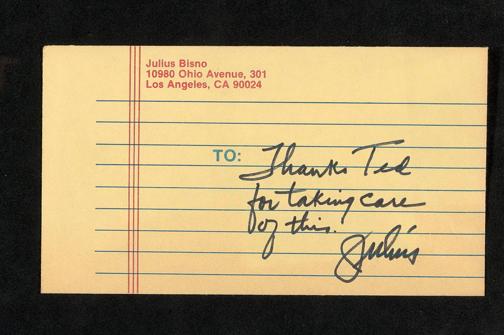 Julius Bisno
10980 Ohio Avenue, 301
Los Angeles, CA 90024
TO:
Thanks Ted
for taking care
of this.
Julius